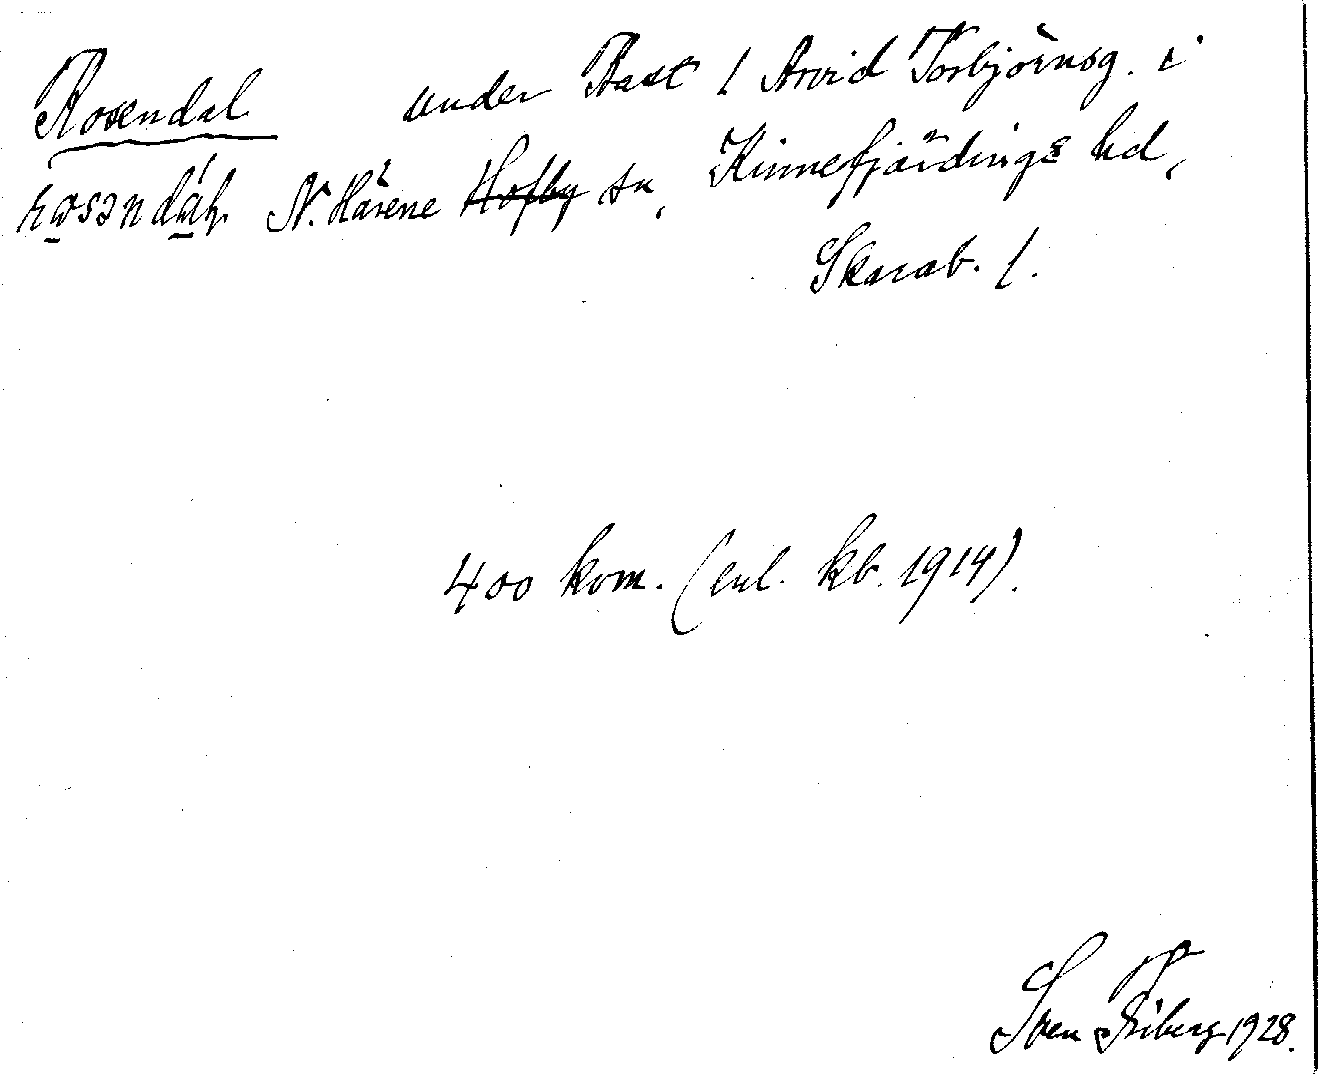 Rosendal under Bast / Arvid Torbjörnsg. i
N. Härene Hofby sn, Kinnefjärdings hd,
Skarab. l.
400 kvm. (enl. kb. 1914).
Sven Friberg 1928.